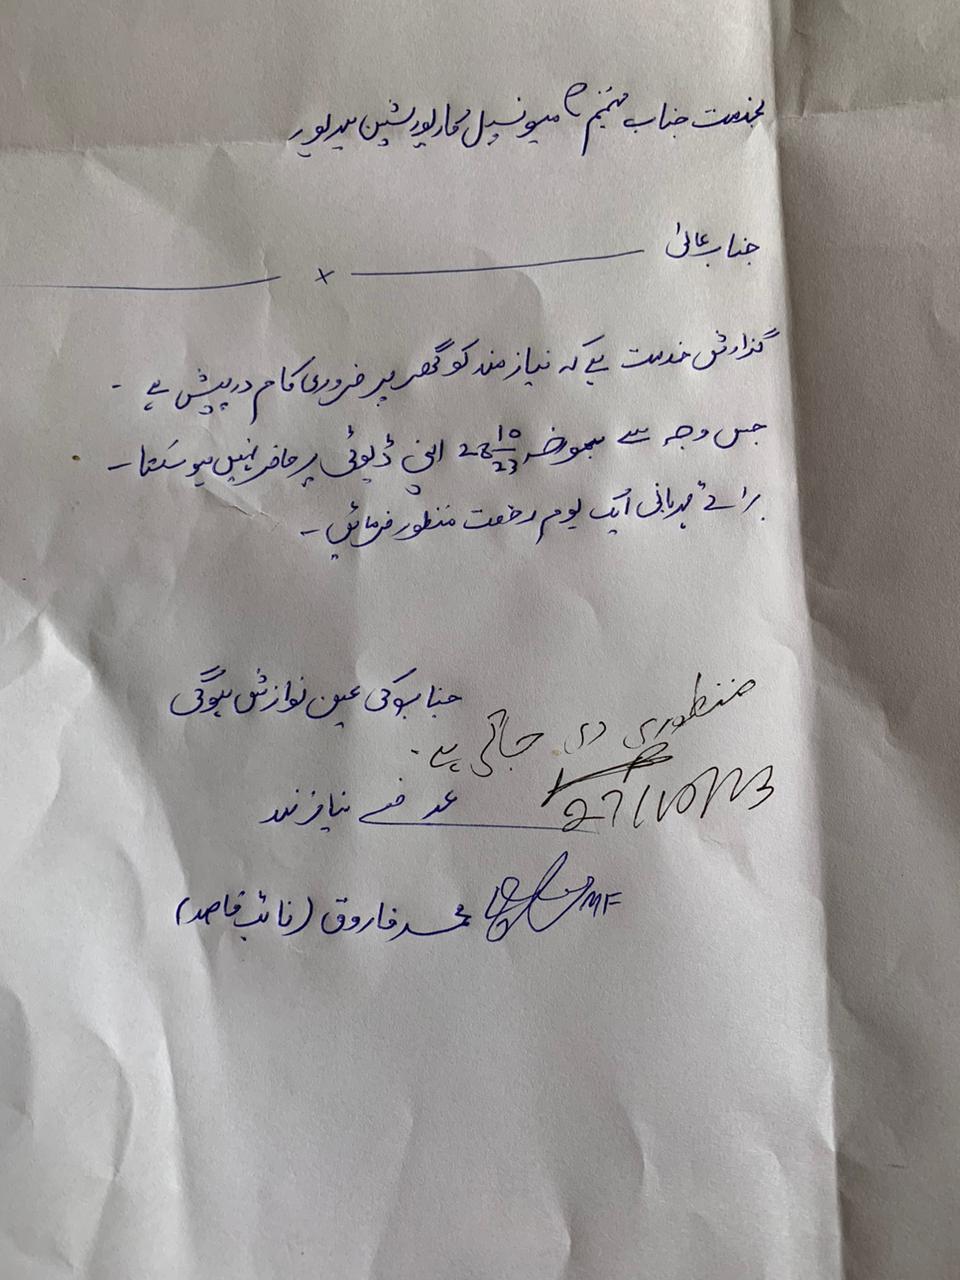 بخدمت جناب مہتمم میونسپل کارپوریشن میرپور
جناب عالیٰ
گذارش خدمت ہے کہ نیازمند کو گھر پر ضروری کام درپیش ہے ۔
جس وجہ سے بموضہ 28 10/23 اپنی ڈیوٹی پر حاضر نہیں ہو سکتا ۔
برائے مہربانی ایک یوم رخصت منظور فرمائیں ۔
جناب کی عین نوازش ہوگی
منظوری دی جاتی ہے ۔
27/10/23
نیازمند
محمد فاروق (نائب قاصد)
MF